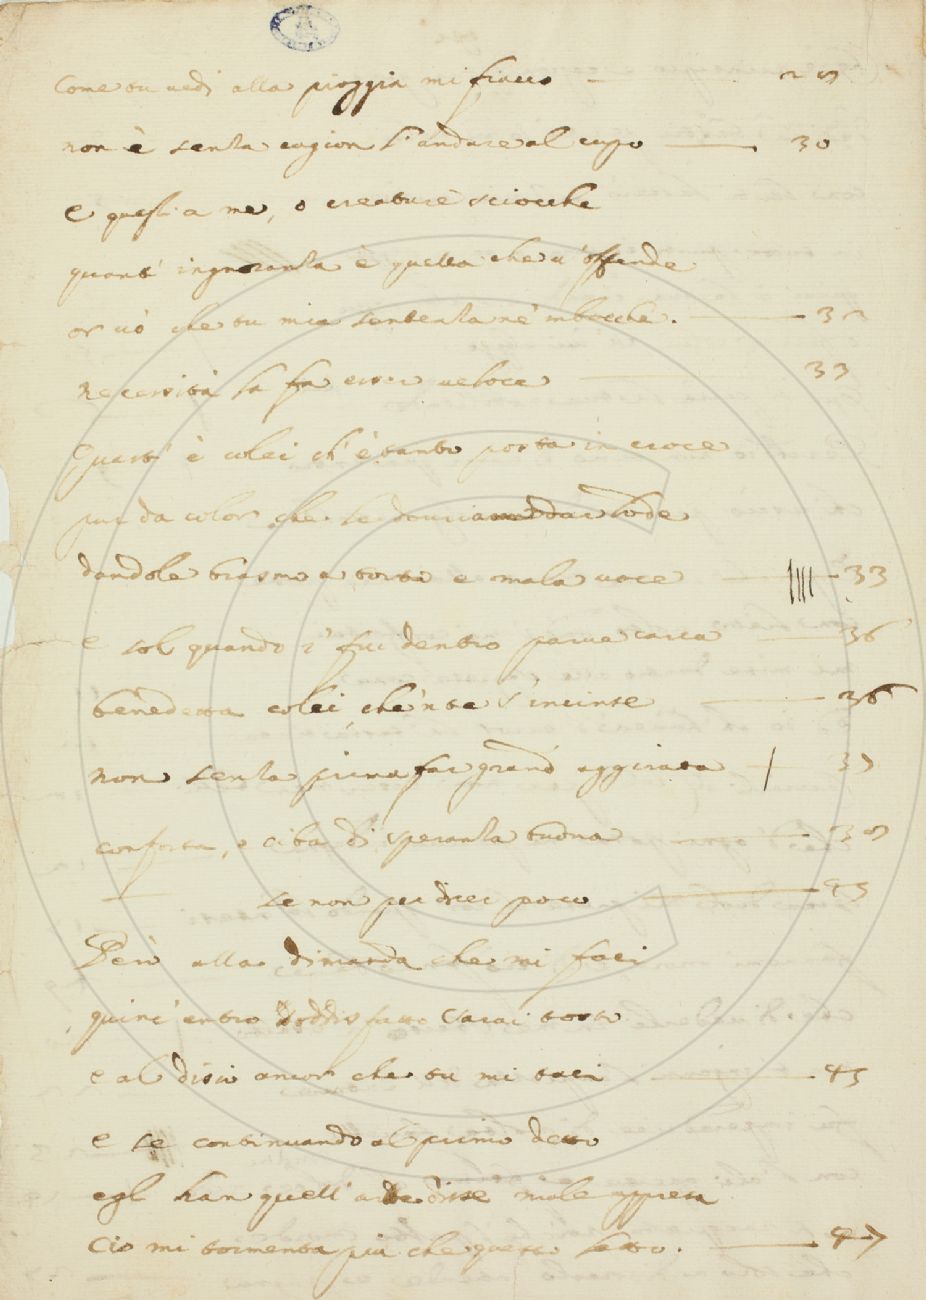 Come tu vedi alla pioggia mi fiacco — 29
non è senza cagion l'andare al cupo — 30
e quest'a me, o creature sciocche
quant' ingnoranza è quella che v'offende
or vò che tu mia sentenza n'e' mbocche. — 32
necessità la fa esser veloce — 33
Quest' è colei ch'è tanto posta in croce
pur da color che le dovria dar lode
dandole biasmo a torto e mala voce — 33
e sol quando i' fui dentro parve carca — 36
benedetta colei che'n te s'incinse — 36
non senza prima far grand' aggirata — 37
conforta, e ciba di speranza buona — 39
se non per dicer poco — 45
Però alla dimanda che mi faci
quinc' entro soddisfatto sarai tosto
e al disio ancor che tu mi taci — 45
e se continuando al primo detto
egl' han quell' arte disse male appresa
Ciò mi tormenta più che questo letto. — 47